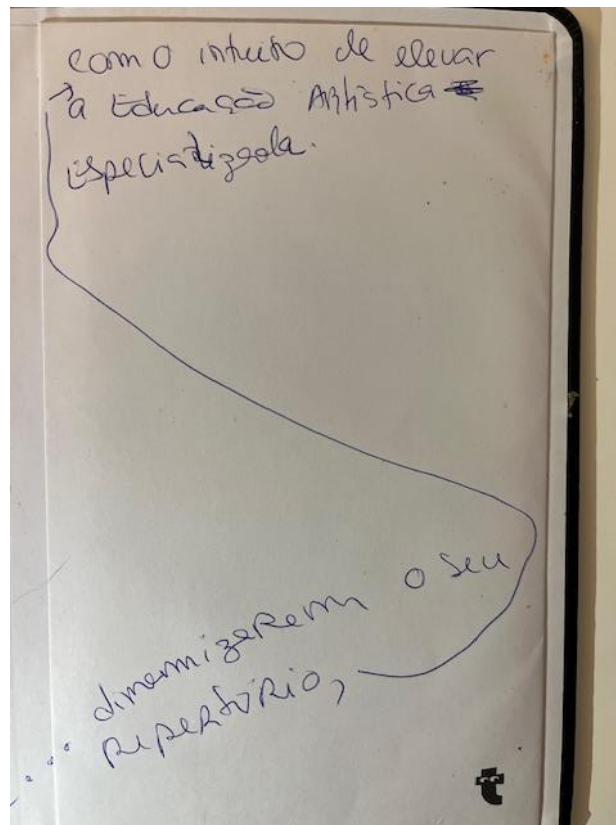 com o intuito de elevar
a Educação Artística
Especializada.
dinamizarem o seu
repertório,
t